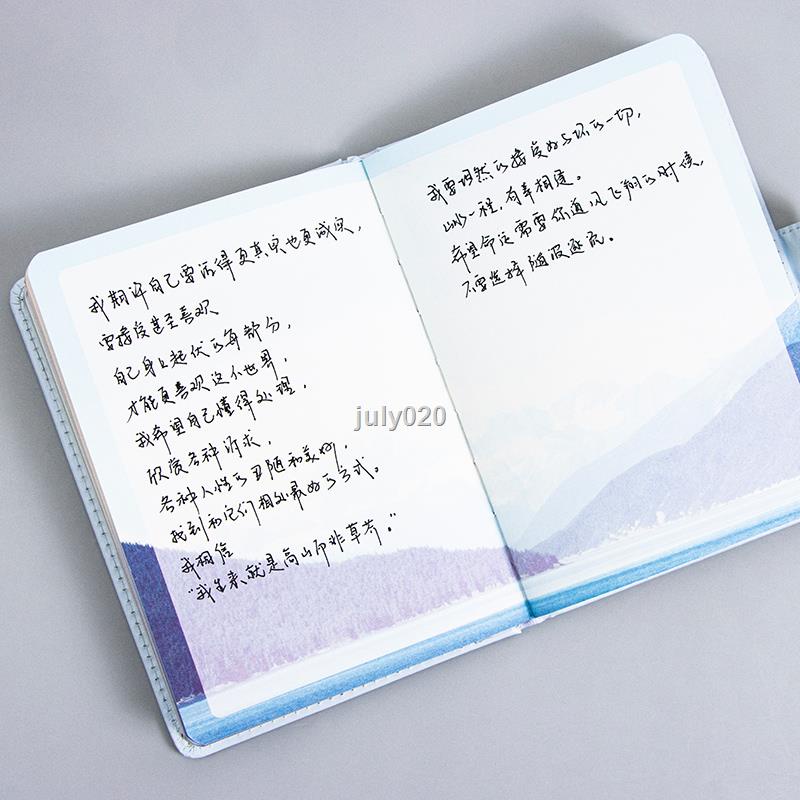 我期许自己要活得更真实也更诚实，
要接受甚至喜欢
自己身上起伏的每部分，
才能更喜欢这个世界，
我希望自己懂得处理，
欣赏各种诉求，
各种人性的丑陋和美好，
找到和它们相处最好的方式。
我相信
“我生来就是高山而非草芥。”
我要坦然的接受好与坏的一切，
山水一程，有幸相逢。
希望命运需要你迎风飞翔的时候，
不要选择随波逐流。
july020